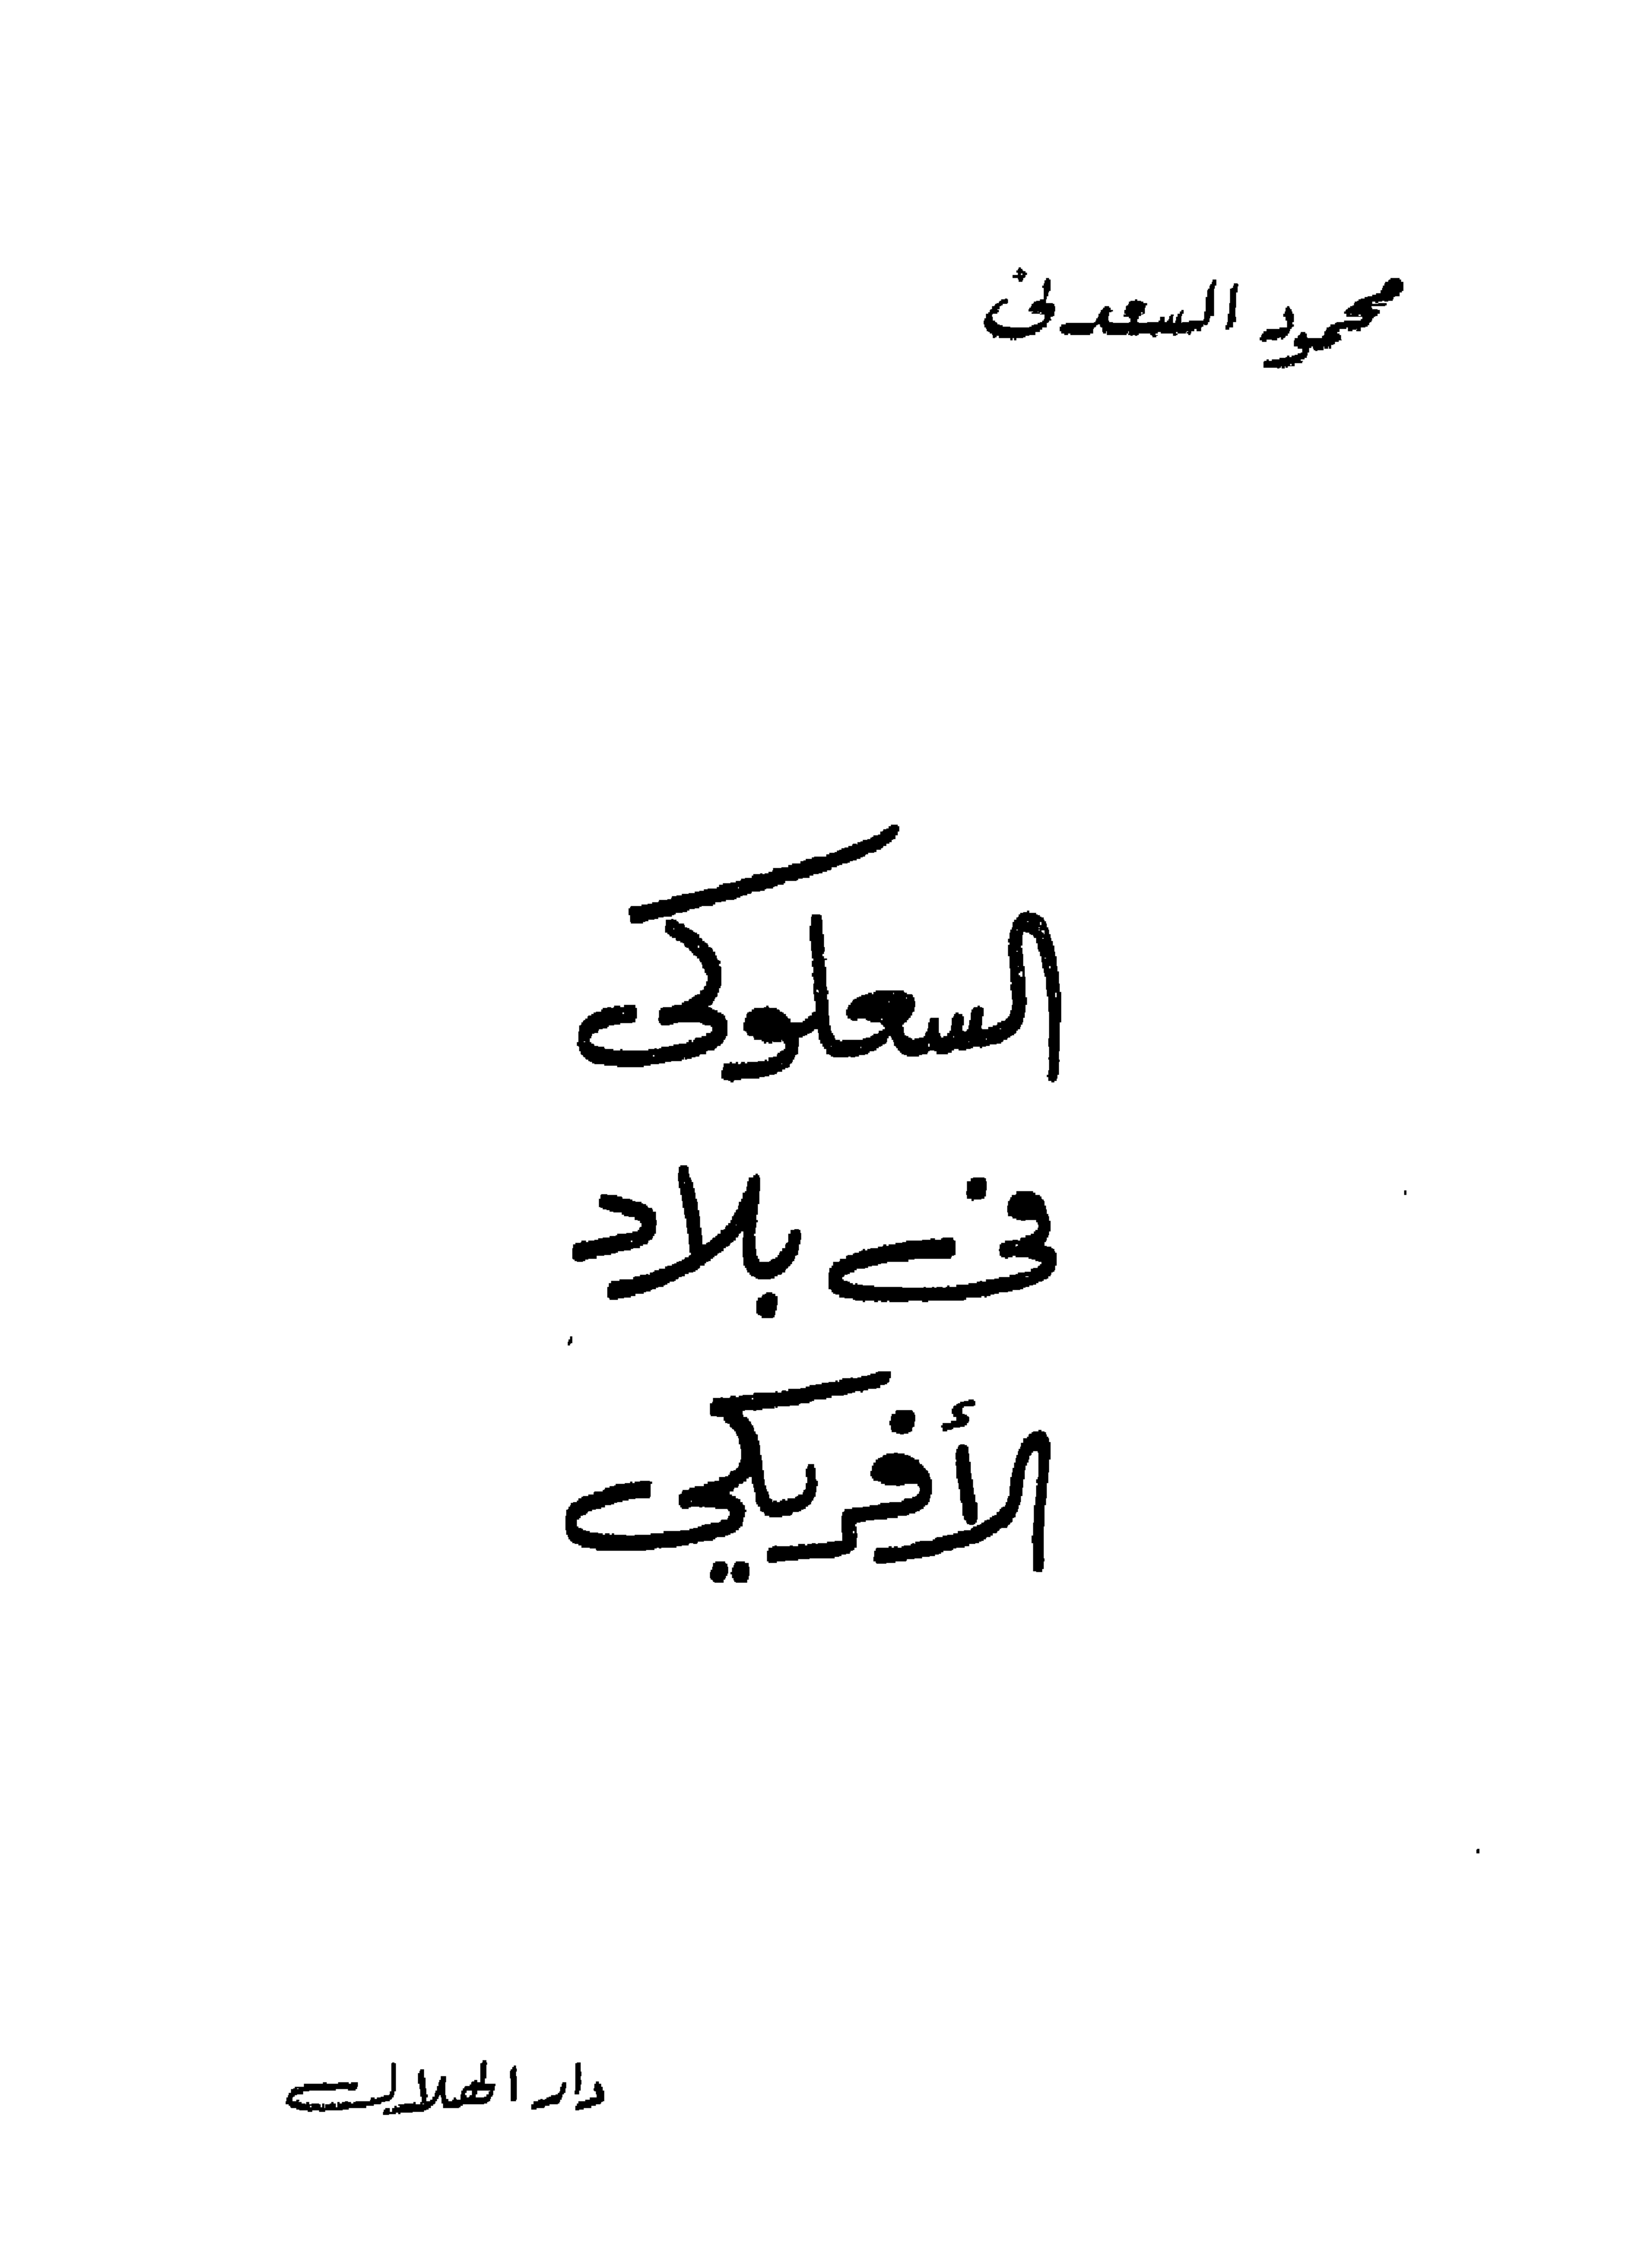 محمود السعدنى
السعلوكى
فى بلاد
الأفريكي
دار الهلال